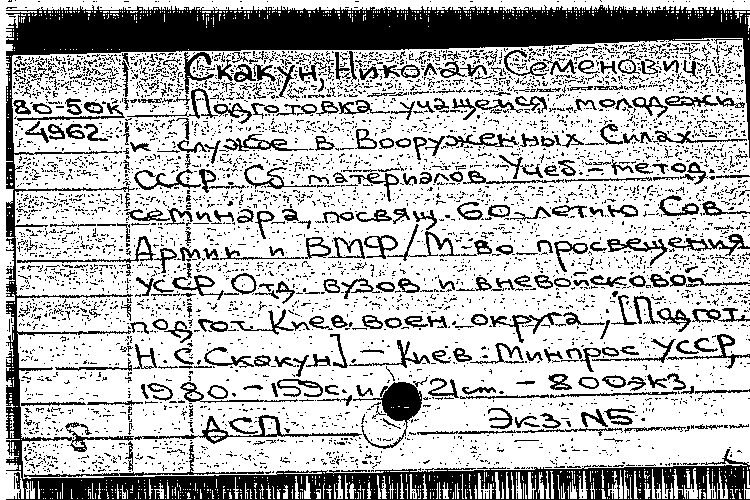 Скакун, Николай Семенович
80-50к Подготовка учащейся молодежи
4962 к службе в Вооруженных Силах
СССР. Сб. материалов Учеб.-метод.
семинара, посвящ. 60-летию Сов.
Армии и ВМФ/М-во просвещения
УССР, Отд. вузов и вневойсковой
подгот. Киев. воен. округа; [Подгот.
Н.С.Скакун]. - Киев: Минпрос УССР,
1980. - 159с., 21 см. - 800экз.
ДСП. Экз. N5